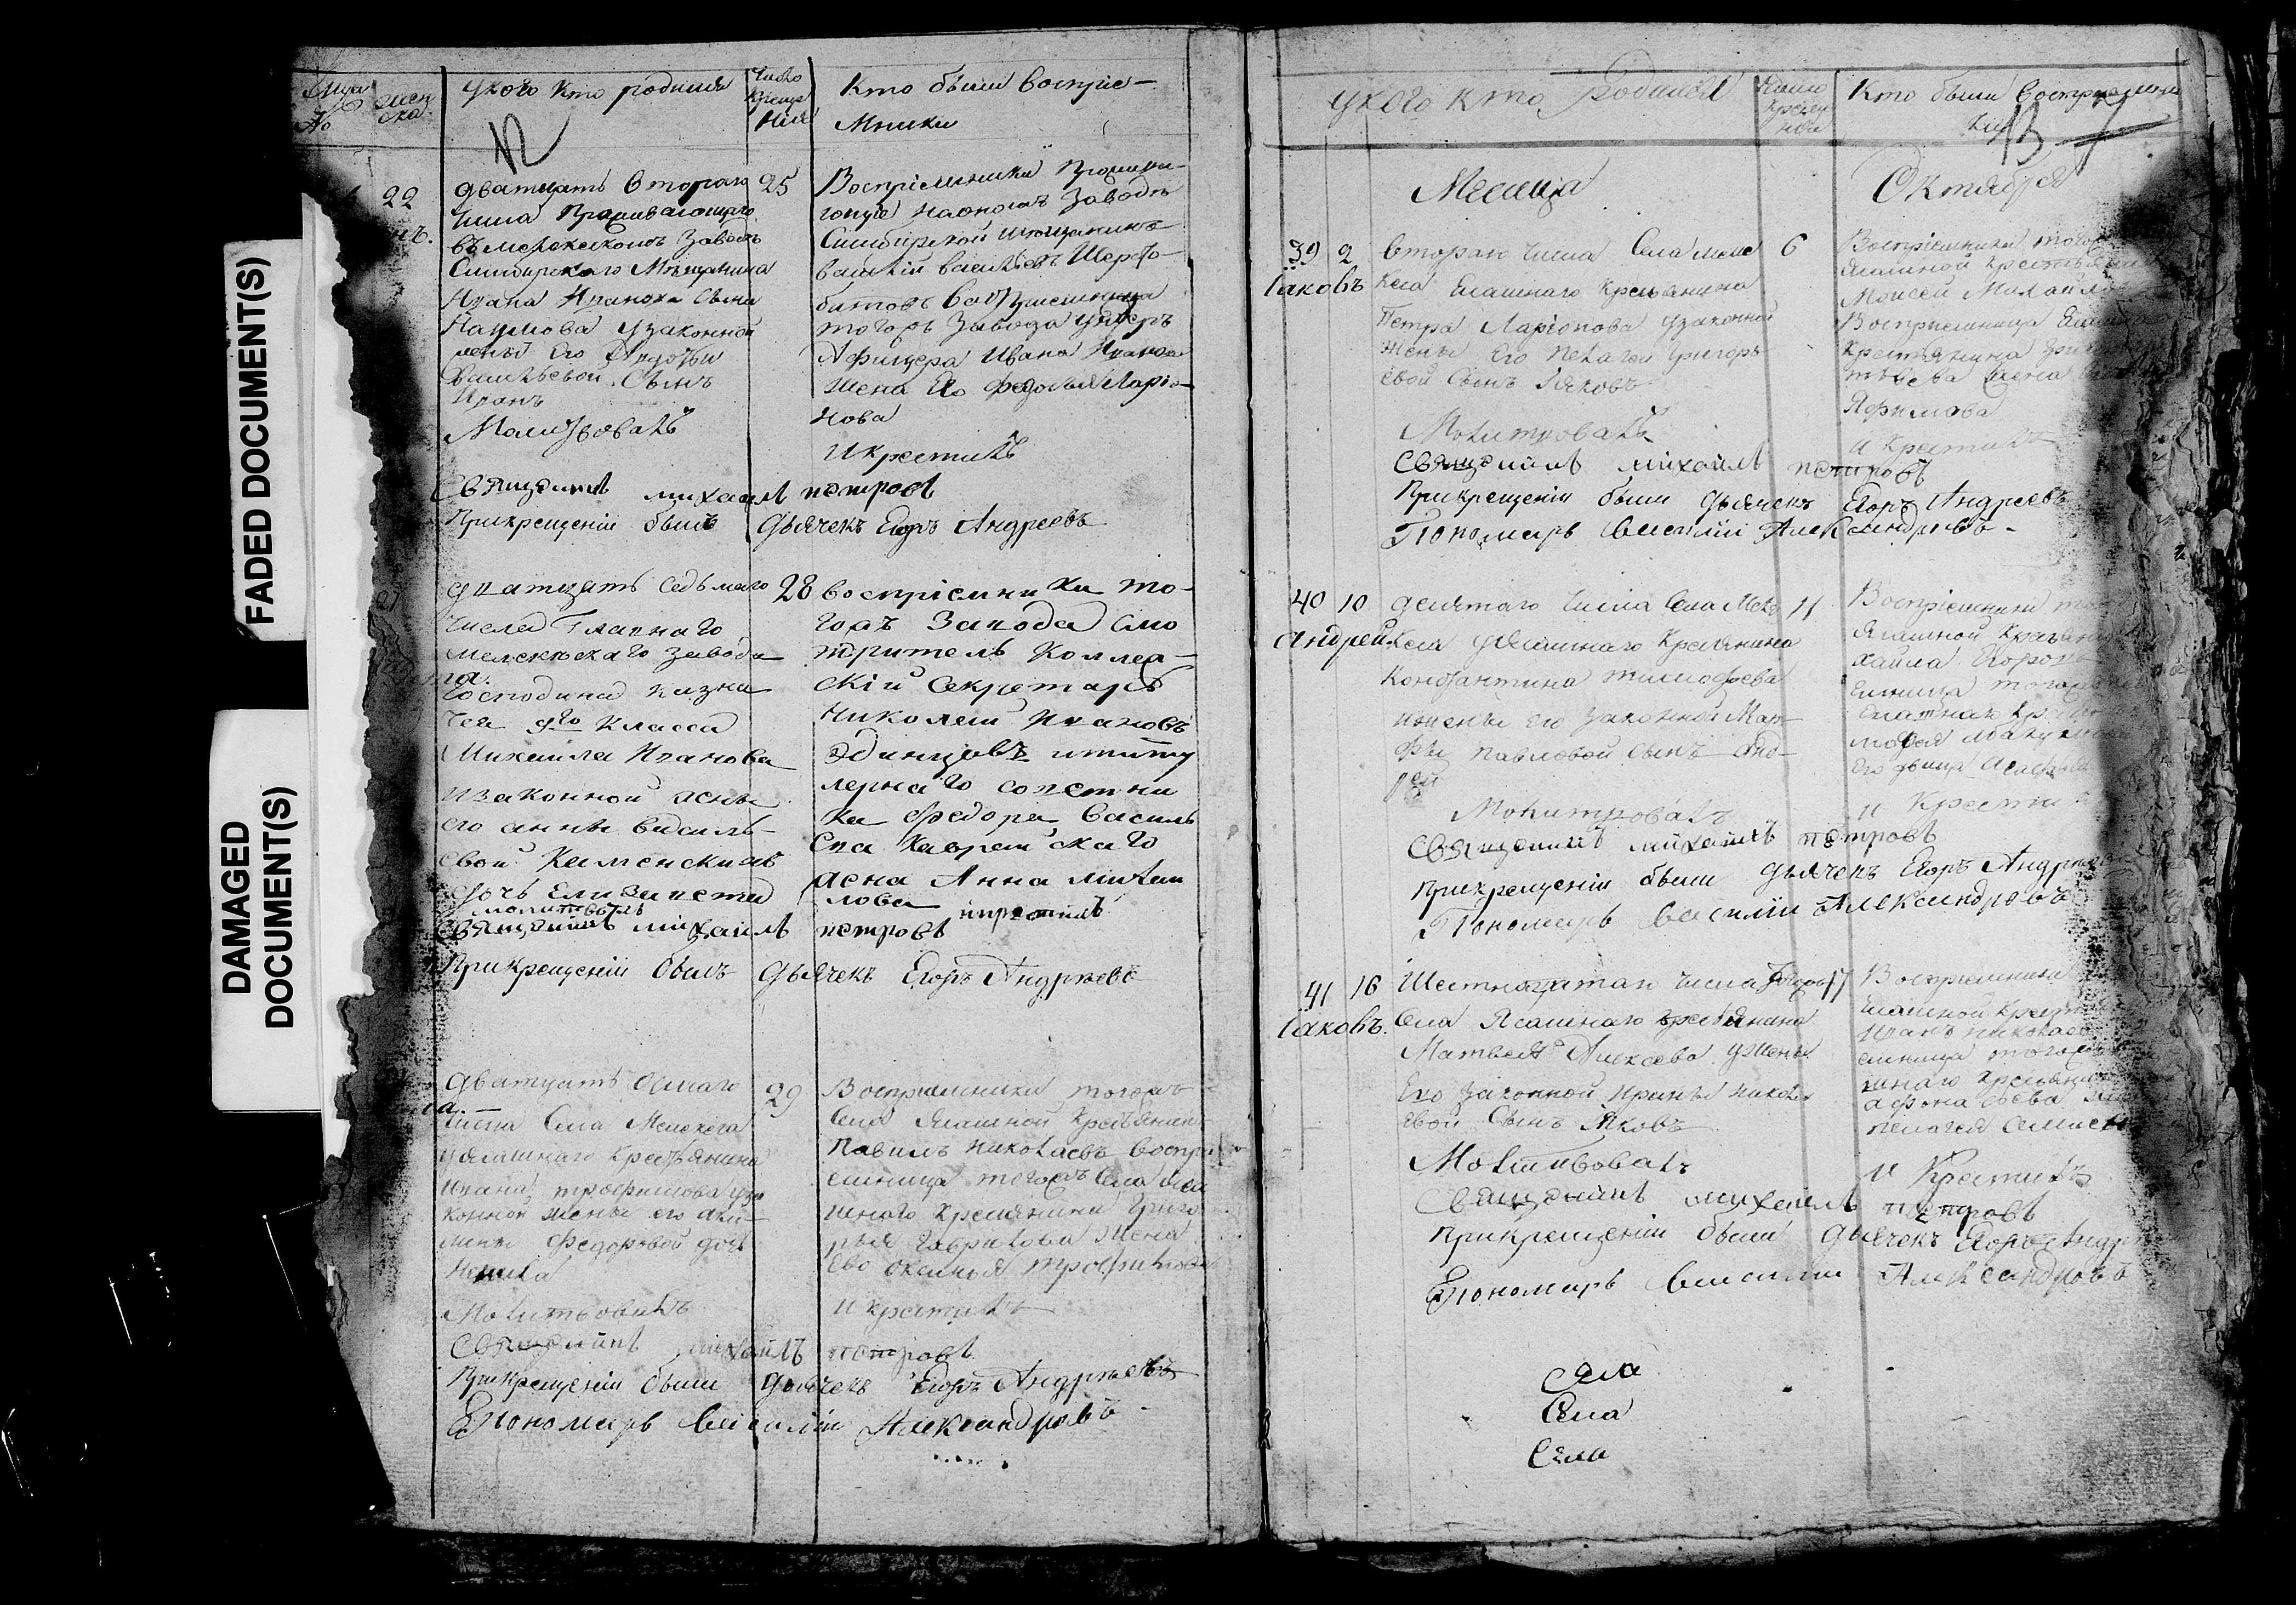 FADED DOCUMENT(S)
DAMAGED
DOCUMENT(S)
№
у кого кто родился
Число
креще
ния
Кто были восприе-
мники
12
22
дватцать втораго
25
числа проживающаго
въ мелекескомъ заводе
Симбирскаго мещанина
Ивана Иванова сына
Наумова у законной
жены его Авдотьи
Васильевой сынъ
Иванъ
Молитвовалъ
Восприемники прожива-
ющие на ономъ заводе
Симбирской мещанинъ
Василий Васильевъ Щерба-
батовъ
тогожъ завода ундеръ
Афицера Ивана Иванова
жена Его Федосья Ларио-
нова
и крестилъ
Священникъ михаилъ петровъ
При крещении былъ дьячекъ Егоръ Андреевъ
дватцать седьмаго
28
числа Главнаго
мелекескаго завода
Господина казна
чея 9го класса
Михаила Иванова
и законной жены
его анны василь-
евой Каменскихъ
дочь Елизавета
молитвовалъ
восприемники то-
гожъ Завода смо
тритель Коллеж-
ский секретарь
Николай Ивановъ
Одинцовъ и титу
лярнаго советни
ка Федора Василь
ева
жена Анна михаи
лова
и крестилъ
Священникъ михаилъ петровъ
При крещении былъ дьячекъ Егоръ Андреевъ
дватцать осмаго
29
числа Села Мелекеса
у ясашнаго крестьянина
Ивана трофимова у за
конной жены его аки-
лины Федоровой дочь
Молитвовалъ
Восприемники тогожъ
села ясашной крестьянинъ
Павилъ николаевъ воспри
емница тогожъ Села яса
шнаго крестьянина Григо
рья Гаврилова жена
ево оксинья трофимова
и крестилъ
Священникъ михаилъ петровъ
При крещении были дьячекъ Егоръ Андреевъ
Пономарь Василий Александровъ
у кого кто родился
Число
креще
ния
Кто были восприемни
ки
13
Месяца
Октября
39
2
Iаковъ
втораго числа Села меле
6
кеса Ясашнаго крестьянина
Петра Ларионова у законной
жены Его пелагеи григорь
евой сынъ Iяковъ
Молитвовалъ
Восприемники
ясашной крестьянинъ
Моисей Михайловъ
Восприемница Ясашнаго
крестьянина
жена
Яфимова
и крестилъ
Священникъ михаилъ петровъ
При крещении были дьячекъ Егоръ Андреевъ
Пономарь Василий Александровъ
40
10
Андрей
десятаго числа Села Меле
11
кеса у Ясашнаго крестьянина
Констянтина тимофеева
и жены его законной Мар-
фы Павловой сынъ Анд-
рей
Молитвовалъ
Восприемники
ясашной крестьянинъ
хаила Егоровъ
емница тогожъ
его дочь Агафья
и крестилъ
Священникъ михаилъ петровъ
При крещении были дьячекъ Егоръ Андреевъ
Пономарь Василий Александровъ
41
16
Iаковъ
Шестнадцатаго числа тогожъ
17
села Ясашнаго крестьянина
Матвея Алексева у жены
Его законной Ирины никола
евой Сынъ Яковъ
Молитвовалъ
Восприемники
Ясашной крестьянинъ
Иванъ николаевъ
емница тогожъ
шнаго крестьянина
афонасьева
пелагея
и Крестилъ
Священникъ михаилъ петровъ
При крещении были дьячекъ Егоръ Андр
Пономарь Василий Александровъ
Села
Села
Села